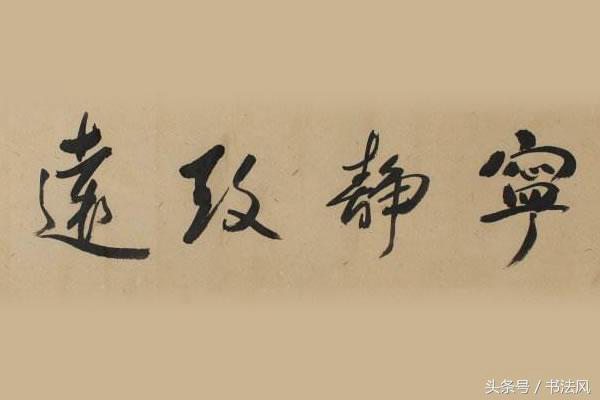 寧靜致遠
头条号 / 书法风